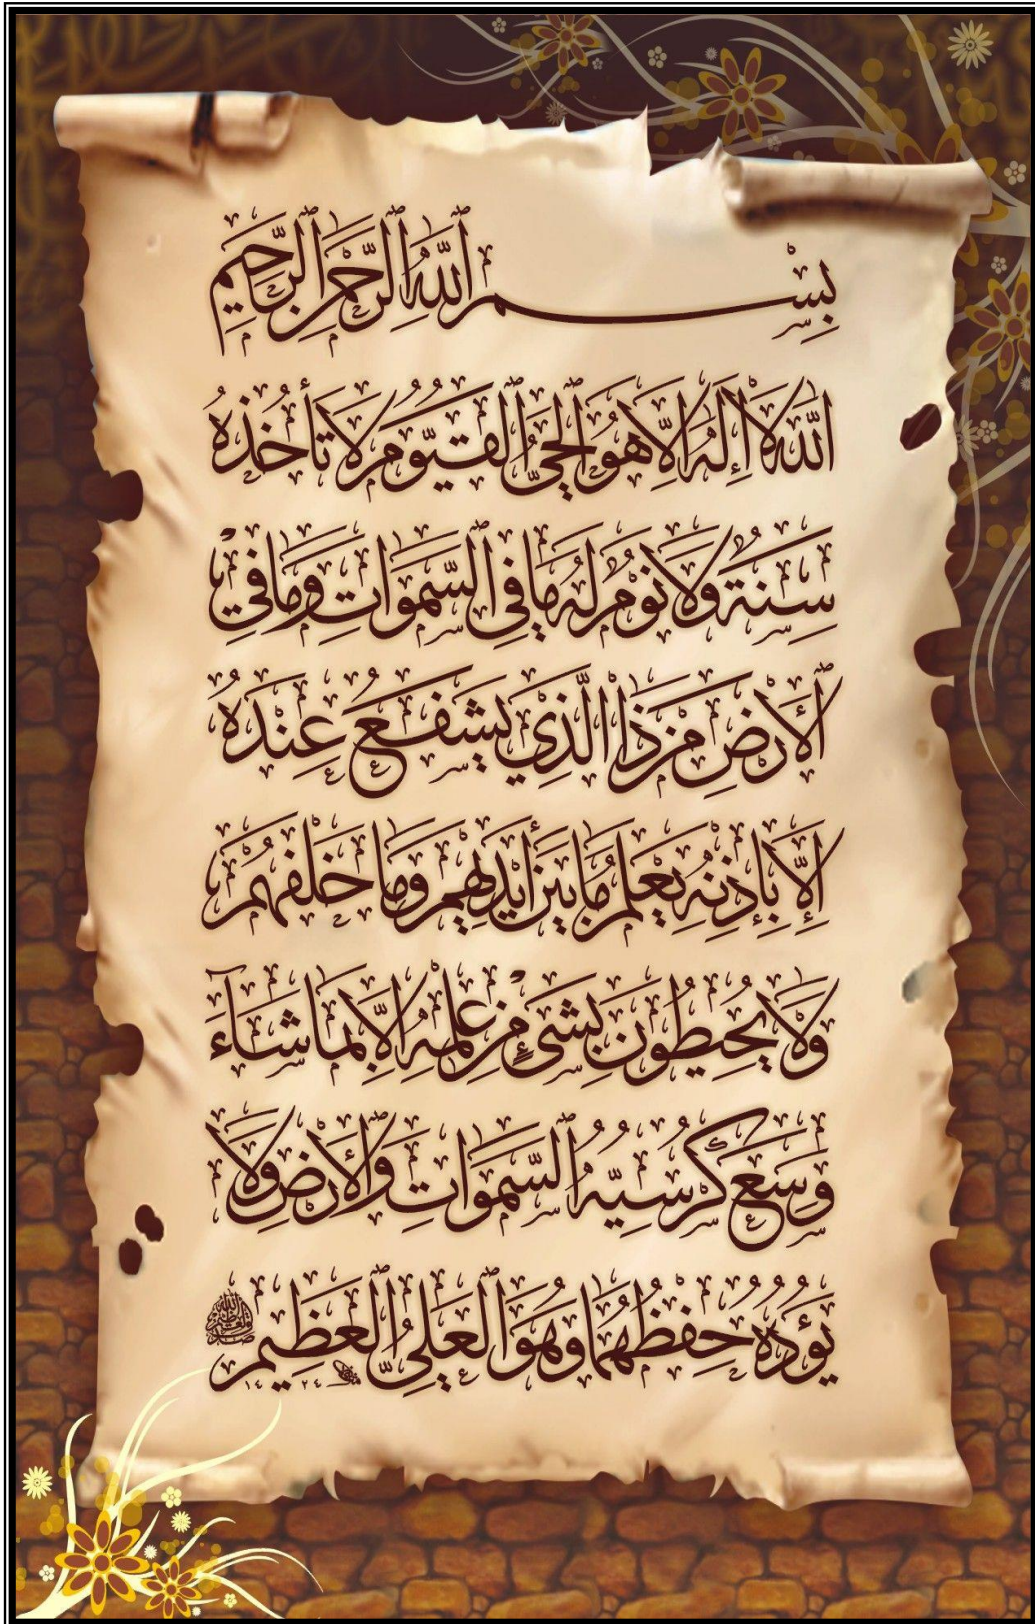 بِسْمِ ٱللَّهِ ٱلرَّحْمَٰنِ ٱلرَّحِيمِ
ٱللَّهُ لَا إِلَٰهَ إِلَّا هُوَ ٱلْحَيُّ ٱلْقَيُّومُ لَا تَأْخُذُهُ
سِنَةٌ وَلَا نَوْمٌ لَهُ مَا فِي ٱلسَّمَوَاتِ وَمَا فِي
ٱلْأَرْضِ مَنْ ذَا ٱلَّذِي يَشْفَعُ عِنْدَهُ
إِلَّا بِإِذْنِهِ يَعْلَمُ مَا بَيْنَ أَيْدِيهِمْ وَمَا خَلْفَهُمْ
وَلَا يُحِيطُونَ بِشَيْءٍ مِنْ عِلْمِهِ إِلَّا بِمَا شَاءَ
وَسِعَ كُرْسِيُّهُ ٱلسَّمَوَاتِ وَٱلْأَرْضَ وَلَا
يَؤُدُهُ حِفْظُهُمَا وَهُوَ ٱلْعَلِيُّ ٱلْعَظِيمُ
صدق الله العظيم
١٤٢٤